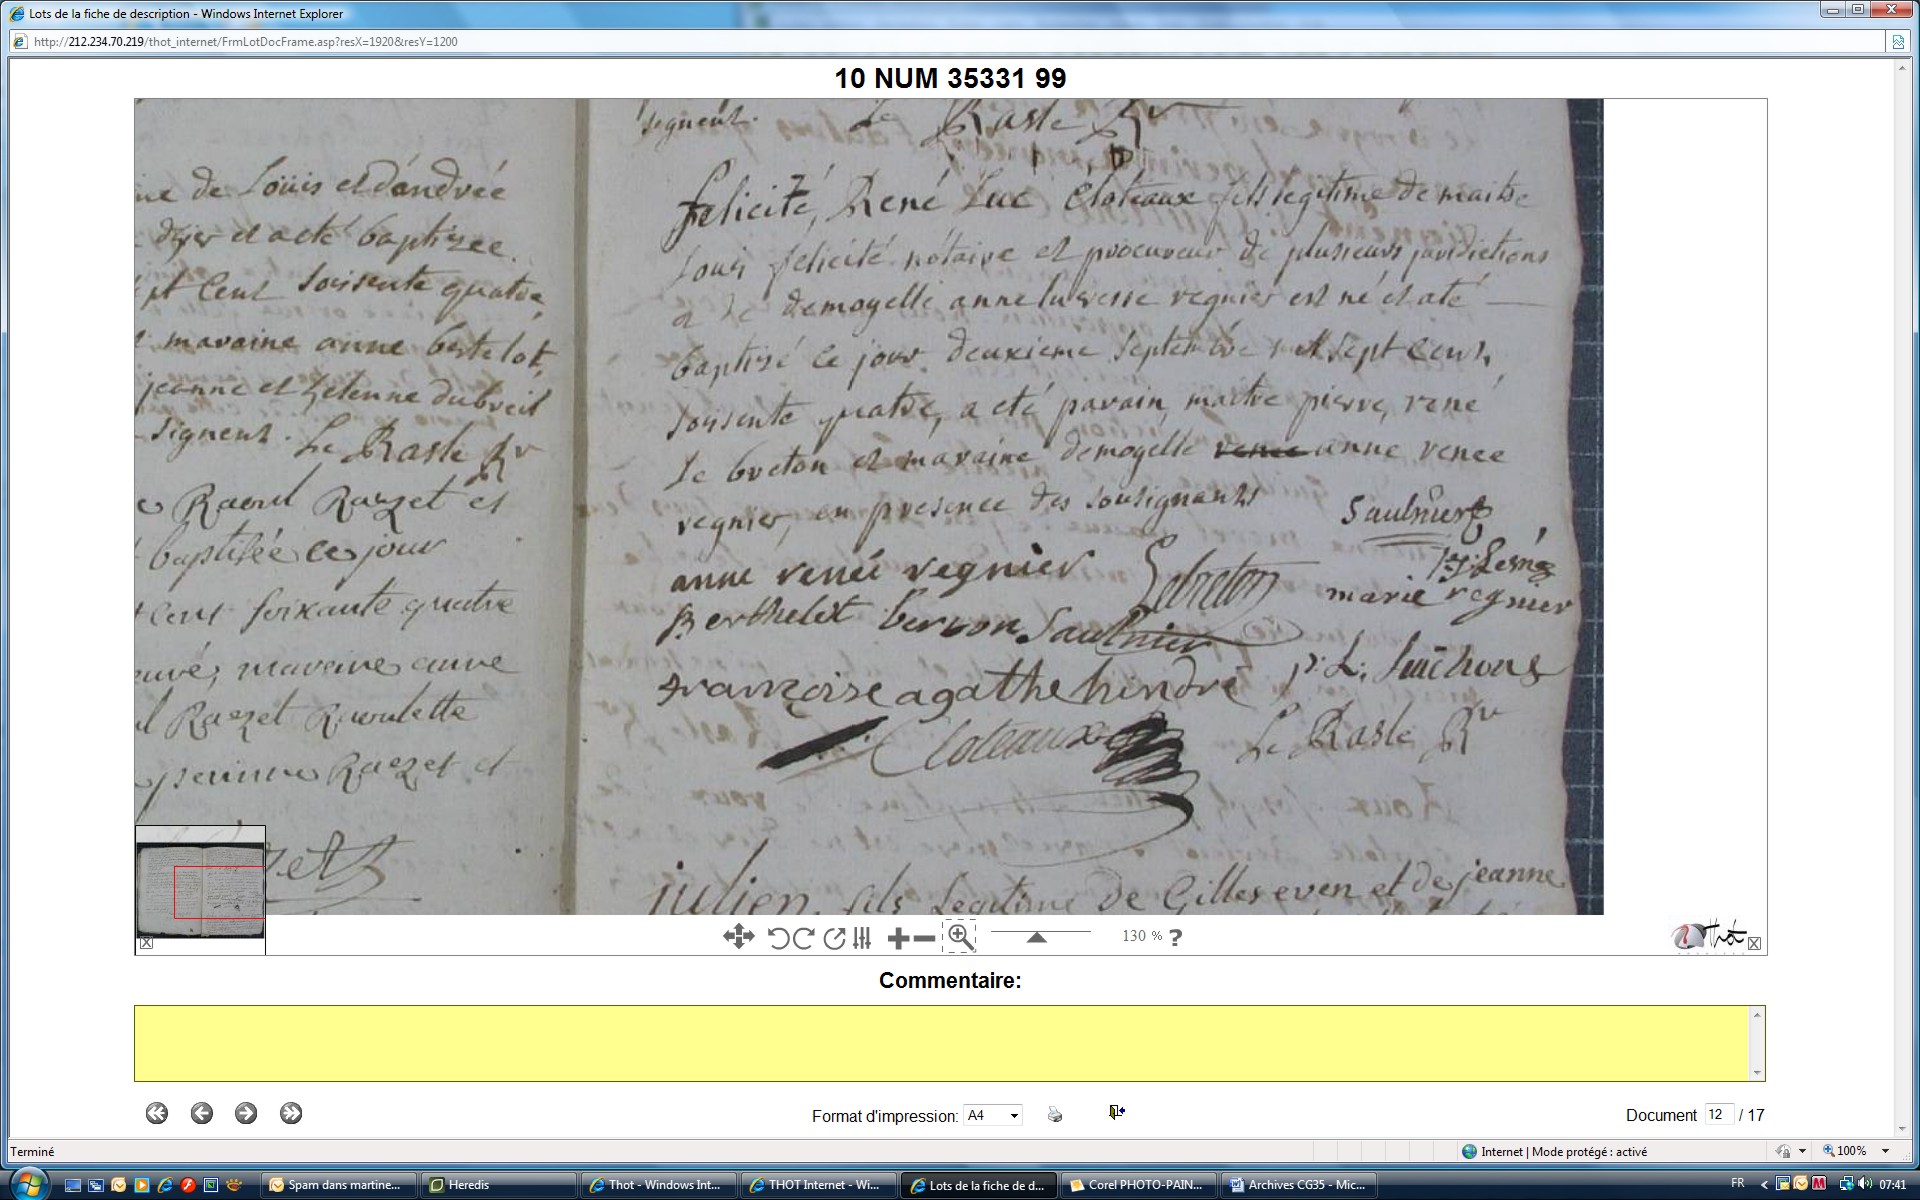 Lots de la fiche de description - Windows Internet Explorer
http://212.234.70.219/thot_internet/FrmLotDocFrame.asp?resX=1920&resY=1200
10 NUM 35331 99
ne de Loüis et dandrée
et acté baptizée.
pt Cent soissente quatre,
maraine anne bertelot,
jeanne et etienne dubreil
signent. Le Rasle Rr
Raoul Razet et
baptisée ce jour
Cent soixante quatre
maraine anne
Raezet Raoulette
perinne Raezet et
signent. Le Rasle Rr
felicité, René Luc Cloteaux fils legitime de maitre
Louis felicité notaire et procureur de plusieurs juridictions
et de demoyelle anne regnier est né et até
baptisé ce jour deuxieme septembre mil sept Cent,
soissente quatre, a eté parain maitre pierre, rené
le breton et maraine demoyelle renee anne renee
regnier, en presence des sousignants
Saulnier
anne renée regnier Lebreton
marie regnier
Berthelot berron Saulnier
françoise agathe hindré
Cloteaux Le Rasle Rr
julien, fils Legitime de Gilles even et de jeanne
130 % ?
Thot
Commentaire:
Format d'impression: A4
Document 12 / 17
Terminé
Internet | Mode protégé : activé
100%
Spam dans martine...
Heredis
Thot - Windows Int...
THOT Internet - Wi...
Lots de la fiche de d...
Corel PHOTO-PAIN...
Archives CG35 - Mic...
FR
07:41